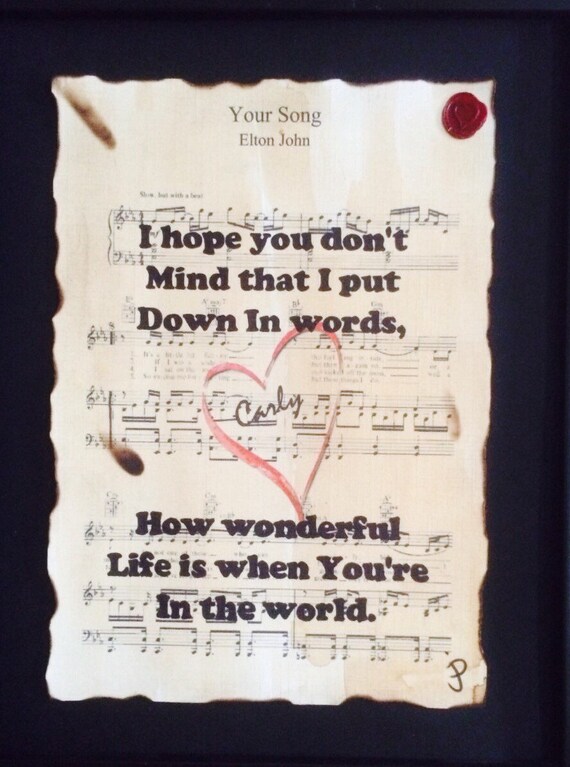 Your Song
Elton John
Slow, but with a beat
I hope you don't
Mind that I put
Down In words,
Carly
How wonderful
Life is when You're
In the world.